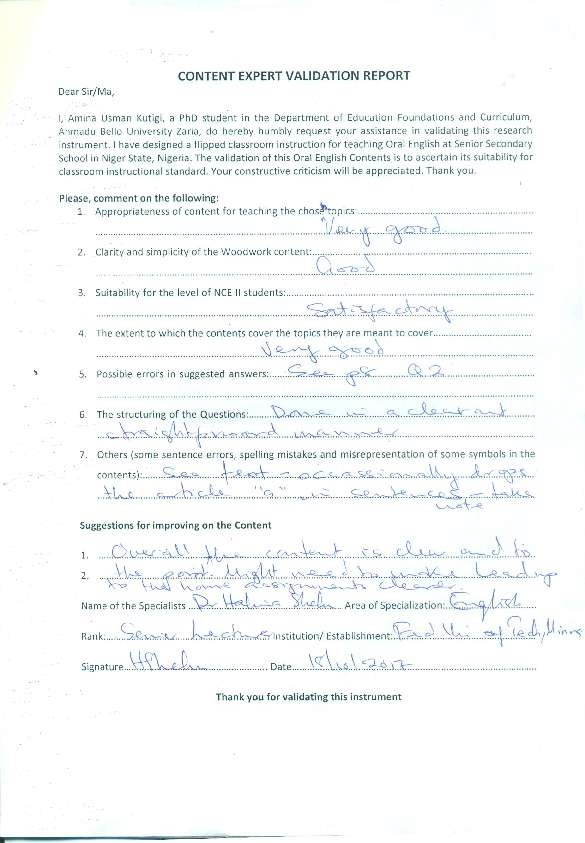 CONTENT EXPERT VALIDATION REPORT
Dear Sir/Ma,
I, Amina Usman Kutigi, a PhD student in the Department of Education Foundations and Curriculum,
Ahmadu Bello University Zaria, do hereby humbly request your assistance in validating this research
instrument. I have designed a flipped classroom instruction for teaching Oral English at Senior Secondary
School in Niger State, Nigeria. The validation of this Oral English Contents is to ascertain its suitability for
classroom instructional standard. Your constructive criticism will be appreciated. Thank you.
Please, comment on the following:
1. Appropriateness of content for teaching the chosen topics:
Very good
2. Clarity and simplicity of the Woodwork content:
Good
3. Suitability for the level of NCE II students:
Satisfactory
4. The extent to which the contents cover the topics they are meant to cover
Very good
5. Possible errors in suggested answers: See p8 Q2
6. The structuring of the Questions: Done in a clear and
straightforward manner
7. Others (some sentence errors, spelling mistakes and misrepresentation of some symbols in the
contents): See text - occassionally drops
the article "a" in sentences - take
note
Suggestions for improving on the Content
1. Overall the content is clear and to
2. the point. Might need to make heading
to the home assignments clearer
Name of the Specialists Dr Halima Shehu Area of Specialization: English
Rank: Senior Lecturer Institution/ Establishment: Fed Uni of Tech, Minna
Signature Date 18/10/2017
Thank you for validating this instrument